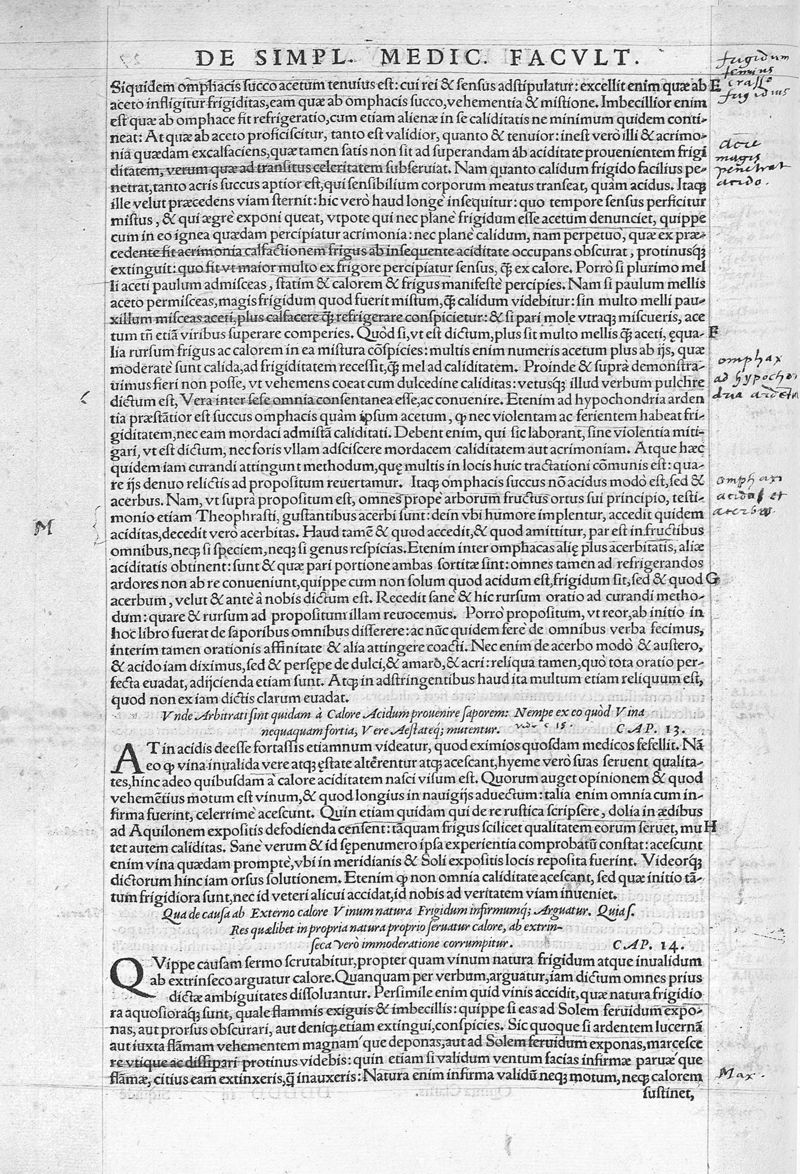 DE SIMPL. MEDIC. FACVLT.
Siquidem omphacis succo acetum tenuius est: cui rei & sensus adstipulatur: excellit enim quæ ab E
aceto infligitur frigiditas, eam quæ ab omphacis succo, vehementia & mistione. Imbecillior enim
est quæ ab omphace fit refrigeratio, cum etiam alienæ in se caliditatis ne minimum quidem conti-
neat: At quæ ab aceto proficiscitur, tanto est validior, quanto & tenuior: inest verò illi & acrimo-
nia quædam excalfaciens, quæ tamen satis non sit ad superandam ab aciditate prouenientem frigi
ditatem, verum quæ ad transitus celeritatem subseruiat. Nam quanto calidum frigido facilius pe-
netrat, tanto acris succus aptior est, qui sensibilium corporum meatus transeat, quàm acidus. Itaqȝ
ille velut præcedens viam sternit: hic verò haud longè insequitur: quo tempore sensus perficitur
mistus, & qui ægrè exponi queat, vtpote qui nec planè frigidum esse acetum denunciet, quippe
cum in eo ignea quædam percipiatur acrimonia: nec planè calidum, nam perpetuò, quæ ex præ-
cedente fit acrimonia calfactionem frigus ab insequente aciditate occupans obscurat, protinusqȝ
extinguit: quo fit vt maior multo ex frigore percipiatur sensus, q̃ ex calore. Porrò si plurimo mel
li aceti paulum admisceas, statim & calorem & frigus manifestè percipies. Nam si paulum mellis
aceto permisceas, magis frigidum quod fuerit mistum, q̃ calidum videbitur: sin multo melli pau-
xillum misceas aceti, plus calfacere q̃ refrigerare conspicietur: & si pari mole vtraqȝ miscueris, ace
tum tñ etiã viribus superare comperies. Quòd si, vt est dictum, plus sit multo mellis q̃ aceti, ęqua- F
lia rursum frigus ac calorem in ea mistura cõspicies: multis enim numeris acetum plus ab ijs, quæ
moderatè sunt calida, ad frigiditatem recessit, q̃ mel ad caliditatem. Proinde & suprà demonstra-
uimus fieri non posse, vt vehemens coeat cum dulcedine caliditas: vetusqȝ illud verbum pulchrè
dictum est, Vera inter sese omnia consentanea esse, ac conuenire. Etenim ad hypochondria arden
tia præstãtior est succus omphacis quàm ipsum acetum, q̃ nec violentam ac ferientem habeat fri-
giditatem, nec eam mordaci admistã caliditati. Debent enim, qui sic laborant, sine violentia miti-
gari, vt est dictum, nec foris vllam adsciscere mordacem caliditatem aut acrimoniam. Atque hæc
quidem iam curandi attingunt methodum, quę multis in locis huic tractationi cõmunis est: qua-
re ijs denuo relictis ad propositum reuertamur. Itaqȝ omphacis succus nõ acidus modò est, sed &
acerbus. Nam, vt suprà propositum est, omnes propè arborum fructus ortus sui principio, testi-
monio etiam Theophrasti, gustantibus acerbi sunt: dein vbi humore implentur, accedit quidem
aciditas, decedit verò acerbitas. Haud tamẽ & quod accedit, & quod amittitur, par est in fructibus
omnibus, neqȝ si speciem, neqȝ si genus respicias. Etenim inter omphacas alię plus acerbitatis, aliæ
aciditatis obtinent: sunt & quæ pari portione ambas sortitæ sint: omnes tamen ad refrigerandos
ardores non ab re conueniunt, quippe cum non solum quod acidum est, frigidum sit, sed & quod G
acerbum, velut & antè à nobis dictum est. Recedit sanè & hic rursum oratio ad curandi metho-
dum: quare & rursum ad propositum illam reuocemus. Porrò propositum, vt reor, ab initio in
hoc libro fuerat de saporibus omnibus disserere: ac nũc quidem ferè de omnibus verba fecimus,
interim tamen orationis affinitate & alia attingere coacti. Nec enim de acerbo modò & austero,
& acido iam diximus, sed & persępe de dulci, & amaro, & acri: reliqua tamen, quò tota oratio per-
fecta euadat, adijcienda etiam sunt. Atqȝ in adstringentibus haud ita multum etiam reliquum est,
quod non ex iam dictis clarum euadat.
Vnde Arbitrati sint quidam à Calore Acidum prouenire saporem: Nempe ex eo quòd Vina
nequaquam fortia, Vere Aestateqȝ mutentur. CAP. 13.
AT in acidis deesse fortassis etiamnum videatur, quod eximios quosdam medicos fefellit. Nã
eo q̃ vina inualida vere atqȝ ęstate alterẽntur atqȝ acescant, hyeme verò suas seruent qualita-
tes, hinc adeo quibusdam à calore aciditatem nasci visum est. Quorum auget opinionem & quod
vehemẽtius motum est vinum, & quod longius in nauigijs aduectum: talia enim omnia cum in-
firma fuerint, celerrimè acescunt. Quin etiam quidam qui de re rustica scripsere, dolia in ædibus
ad Aquilonem expositis defodienda censent: tãquam frigus scilicet qualitatem eorum seruet, mu H
tet autem caliditas. Sanè verum & id sępenumero ipsa experientia comprobatũ constat: acescunt
enim vina quædam promptè, vbi in meridianis & Soli expositis locis reposita fuerint. Videorqȝ
dictorum hinc iam orsus solutionem. Etenim q̃ non omnia caliditate acescant, sed quæ initio tã-
tum frigidiora sunt, nec id veteri alicui accidat, id nobis ad veritatem viam inueniet.
Qua de causa ab Externo calore Vinum natura Frigidum infirmumqȝ Arguatur. Quia s.
Res quælibet in propria natura proprio seruatur calore, ab extrin-
seca verò immoderatione corrumpitur. CAP. 14.
QVippe causam sermo scrutabitur, propter quam vinum natura frigidum atque inualidum
ab extrinseco arguatur calore. Quanquam per verbum, arguatur, iam dictum omnes prius
dictæ ambiguitates dissoluantur. Persimile enim quid vinis accidit, quæ natura frigidio
ra aquosioraqȝ sunt, quale flammis exiguis & imbecillis: quippe si eas ad Solem feruidum expo-
nas, aut prorsus obscurari, aut deniqȝ etiam extingui, conspicies. Sic quoque si ardentem lucernã
aut iuxta flãmam vehementem magnam'que deponas, aut ad Solem feruidum exponas, marcesce
re vtique ac dissipari protinus videbis: quin etiam si validum ventum facias infirmæ paruæ'que
flãmæ, citius eam extinxeris, q̃ inauxeris: Natura enim infirma validũ neqȝ motum, neqȝ calorem
sustinet,
frigidum
tenuius
crasso
frigidius
acre
magis
penetrat
acido.
omphax
ad hypochon
dria ardẽtia
omphaxi
acidus et
acerbus
M
Max.